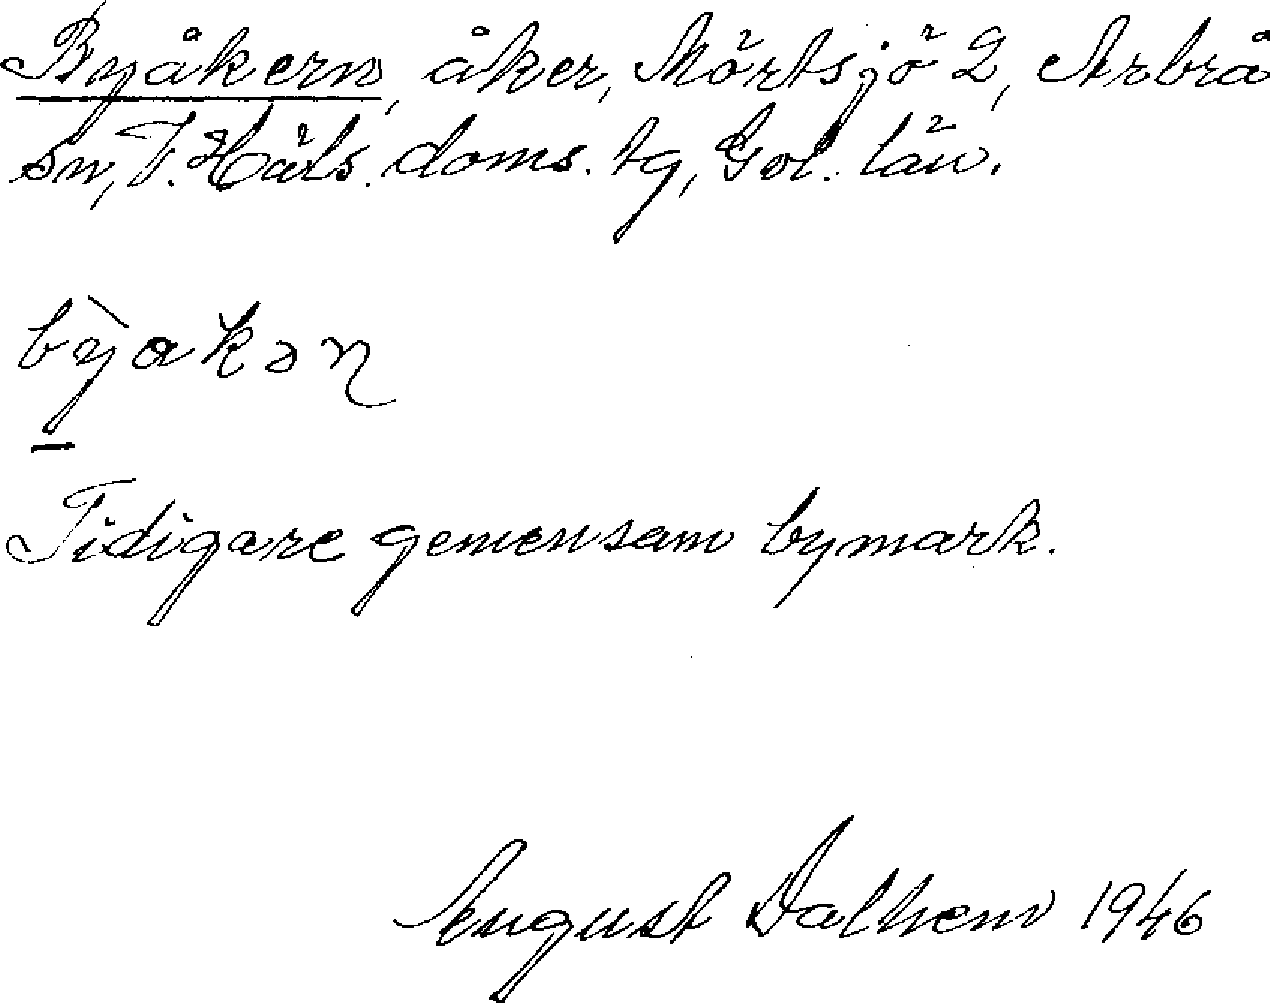 Byåkern, åker, Mörtsjö 2, Arbrå
sn, V. Häls. doms. tg, Gol. län.
bỳakəɳ
Tidigare gemensam bymark.
August Dalhem 1946